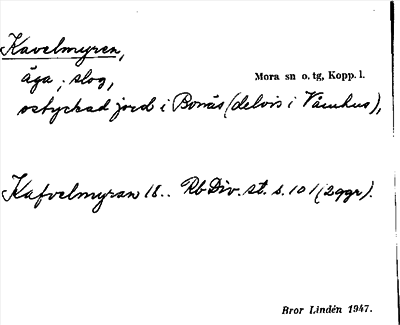 Kavelmyren,
äga, slog,
Mora sn o. tg, Kopp. l.
ostyckad jord i Bonäs (delvis i Våmhus),
Kafvelmyran 18.. Rb Div. st. s. 101 (2 ggr).
Bror Lindén 1947.